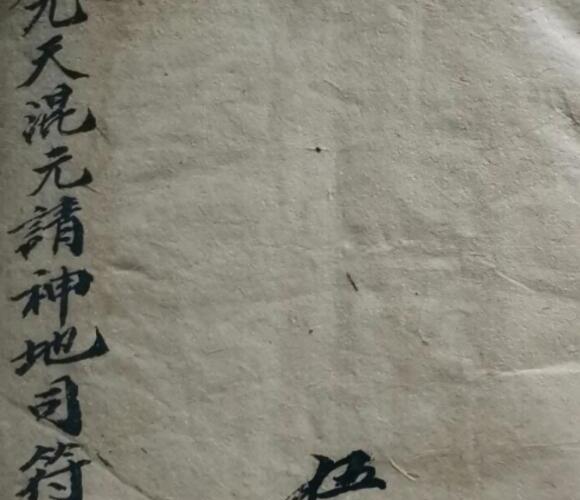 伍
先天混元請神地司符